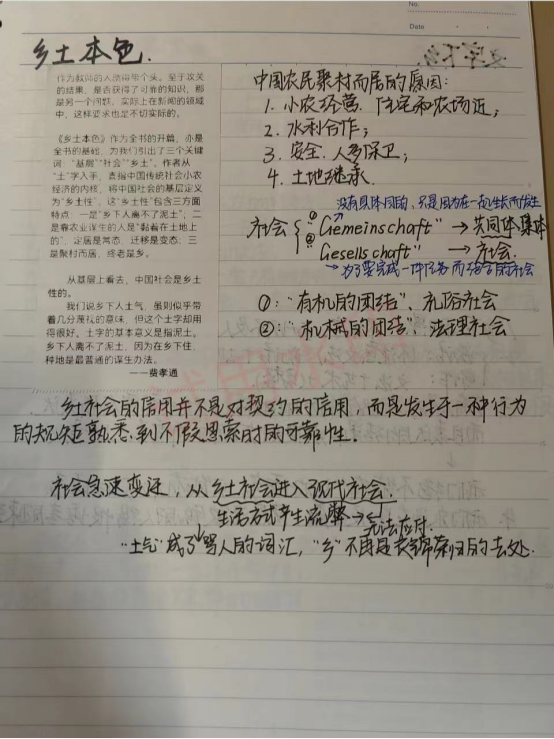 No.
Date
乡土本色.
作为教师的人德得那个头。至于攻关
的结果,是否获得了可靠的知识,那
是另一个问题。实际上在新闻的领域
中,这样要求也是不切实际的。
《乡土本色》作为全书的开篇,亦是
全书的基础,为我们引出了三个关键
词:“基层”“社会”“乡土”。作者从
“土”字入手,直指中国传统社会小农
经济的内核,将中国社会的基层定义
为“乡土性”。这“乡土性”包含三方面
特点:一是“乡下人离不了泥土”;二
是靠农业谋生的人是“黏着在土地上
的”,定居是常态,迁移是变态;三
是聚村而居,终老是乡。
从基层上看去,中国社会是乡土
性的。
我们说乡下人土气,虽则似乎带
着几分藐视的意味,但这个土字却用
得很好。土字的基本意义是指泥土。
乡下人离不了泥土,因为在乡下住,
种地是最普通的谋生办法。
——费孝通
中国农民聚村而居的原因:
1. 小农经营,住宅和农场近;
2. 水利合作;
3. 安全,人多保卫;
4. 土地继承.
没有具体目的,只是因为在一起生长而发生
社会 ① “Gemeinschaft” → 共同体.集体
② “Gesellschaft” → 社会.
→ 为了要完成一件任务而结合的社会
①:“有机的团结”、礼俗社会
②:“机械的团结”、法理社会
乡土社会的信用并不是对契约的信用,而是发生于一种行为
的规矩熟悉到不假思索时的可靠性.
社会急速变迁,从乡土社会进入现代社会.
生活方式产生流弊 → 无法应付.
“土气”成了骂人的词汇,“乡”不再是衣锦荣归的去处.